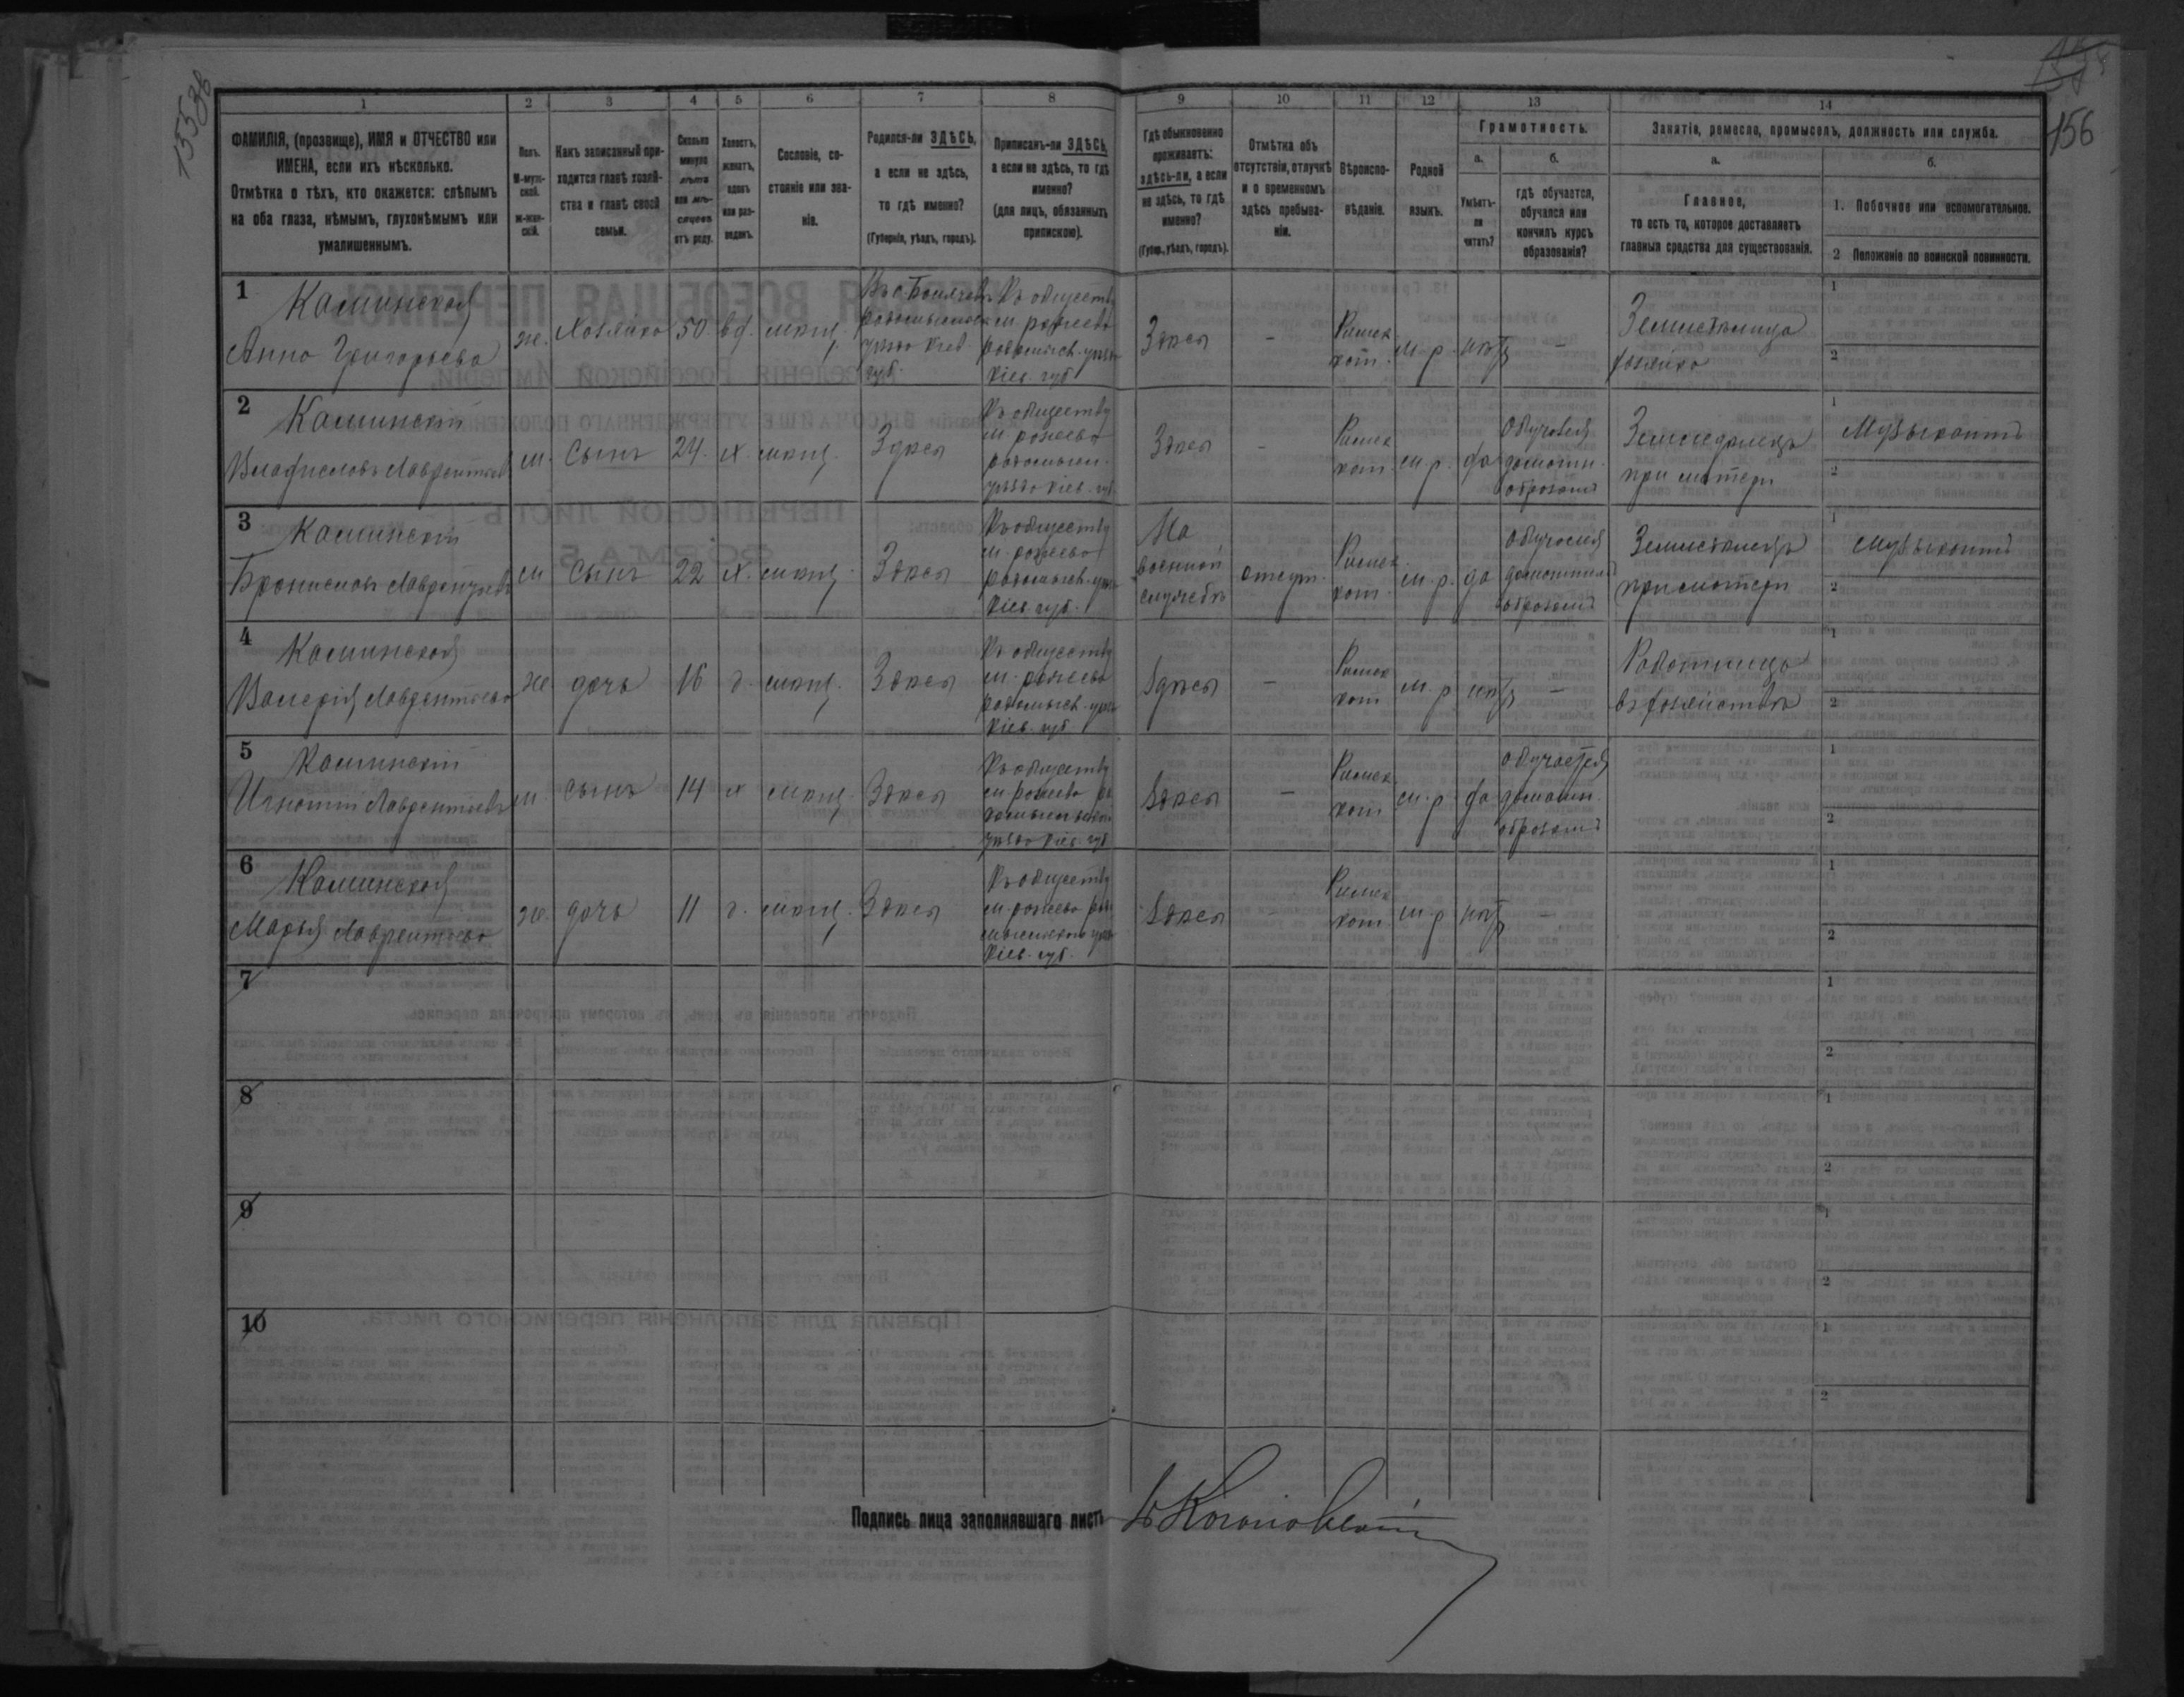 155 об
156
1 2 3 4 5 6 7 8 9 10 11 12 13 14
ФАМИЛІЯ, (прозвище), ИМЯ и ОТЧЕСТВО или
ИМЕНА, если ихъ нѣсколько.
Отмѣтка о тѣхъ, кто окажется: слѣпымъ
на оба глаза, нѣмымъ, глухонѣмымъ или
умалишеннымъ.
Полъ.
М-муж-
ской.
ж-жен-
скій.
Какъ записанный при-
ходится главѣ хозяй-
ства и главѣ своей
семьи.
Сколько
минуло
лѣтъ
или мѣ-
сяцевъ
отъ роду.
Холостъ,
женатъ,
вдовъ
или раз-
веденъ.
Сословіе, со-
стояніе или зва-
ніе.
Родился-ли ЗДѢСЬ,
а если не здѣсь,
то гдѣ именно?
(Губернія, уѣздъ, городъ).
Приписанъ-ли ЗДѢСЬ,
а если не здѣсь, то гдѣ
именно?
(для лицъ, обязанныхъ
припискою).
Гдѣ обыкновенно
проживаетъ:
здѣсь-ли, а если
не здѣсь, то гдѣ
именно?
(Губер., уѣздъ, городъ).
Отмѣтка объ
отсутствіи, отлучкѣ
и о временномъ
здѣсь пребыва-
ніи.
Вѣроиспо-
вѣданіе.
Родной
языкъ.
Грамотность.
а.
Умѣетъ-
ли
читать?
б.
гдѣ обучается,
обучался или
кончилъ курсъ
образованія?
Занятіе, ремесло, промыселъ, должность или служба.
а.
Главное,
то есть то, которое доставляетъ
главныя средства для существованія.
б.
1. Побочное или вспомогательное.
2 Положеніе по воинской повинности.
1
Каминская
Анна Григорьева
ж.
Хозяйка
50
вд.
мѣщ.
уѣзда Кіев.
губ.
Къ обществу
м. рожева
радомысл. уѣзда
Кіев. губ.
Здѣсь
-
Римск
кат.
м. р.
нѣтъ
-
Земледѣлица
хозяйка
1
2
2
Каминскій
Владиславъ Лаврентьевъ
м.
Сынъ
24.
х.
мѣщ.
Здѣсь
Къ обществу
м. рожева
радомысл.
уѣзда Кіев. губ.
Здѣсь
-
Римск
кат.
м. р.
да
Обучался
домашн.
образомъ
Земледѣлецъ
при матери
1
Музыкантъ
2
3
Каминскій
Брониславъ Лаврентьевъ
м
сынъ
22
х.
мѣщ.
Здѣсь
Къ обществу
м. рожева
радомысл. уѣзда
Кіев. губ.
На
военной
службѣ
отсут.
Римск.
кат.
м. р.
да
обучался
домашнимъ
образомъ
Земледѣлецъ
при матери
1
музыкантъ
2
4
Каминская
Валерія Лаврентьева
ж.
дочь
16
д.
мѣщ.
Здѣсь
Къ обществу
м. рожева
радомысл. уѣзда
Кіев. губ
Здѣсь
-
Римск
кат
м. р
нѣтъ
-
Работница
въ хозяйствѣ
1
2
5
Каминскій
Игнатій Лаврентьевъ
м.
сынъ
14
х
мѣщ.
Здѣсь
Къ обществу
м рожева ра
уѣзда Кіев. губ
Здѣсь
-
Римск
кат
м. р
да
обучается
домашн.
образомъ
1
2
6
Каминская
Марья Лаврентьева
ж.
дочь
11
д.
мѣщ.
Здѣсь
Къ обществу
м. рожева
Кіев. губ.
Здѣсь
-
Римск
кат.
м. р
нѣтъ
-
1
2
7
1
2
8
1
2
9
1
2
10
1
2
Подпись лица заполнявшаго листъ